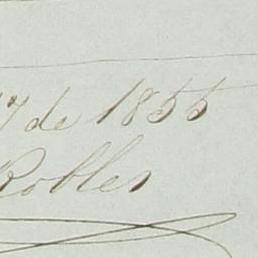 17 de 1855
Robles